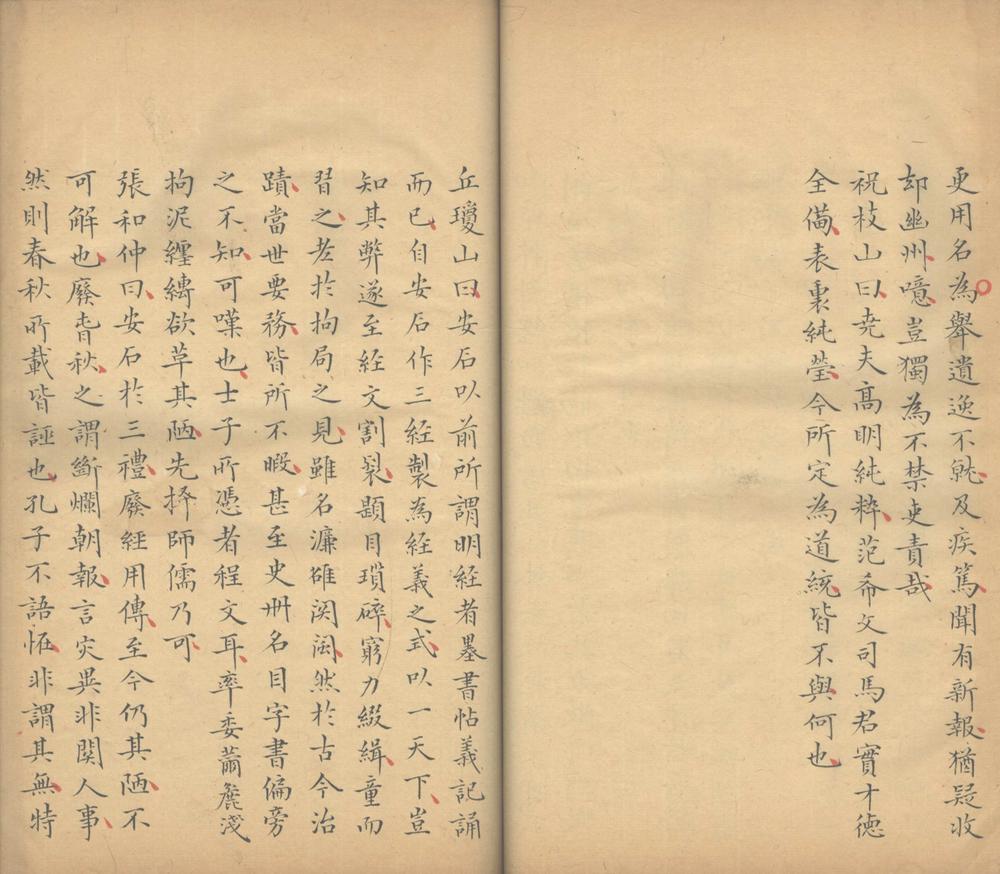 更用名為舉遺逸不就及疾篤聞有新報猶疑收
却幽州噫豈獨為不禁吏責哉
祝枝山曰堯夫高明純粹范希文司馬君實才德
全備表裏純瑩今所定為道統皆不與何也
丘瓊山曰安石以前所謂明経者墨書帖義記誦
而已自安石作三経製為経義之式以一天下豈
知其弊遂至経文割裂題目瑣碎窮力綴緝童而
習之老於拘局之見雖名濂雒関閩然於古今治
蹟當世要務皆所不暇甚至史冊名目字書偏旁
之不知可嘆也士子所憑者程文耳率委薾麄淺
拘泥纏縳欲革其陋先擇師儒乃可
張和仲曰安石於三禮廢経用傳至今仍其陋不
可解也廢春秋之謂斷爛朝報言灾異非関人事
然則春秋所載皆誣也孔子不語恠非謂其無特